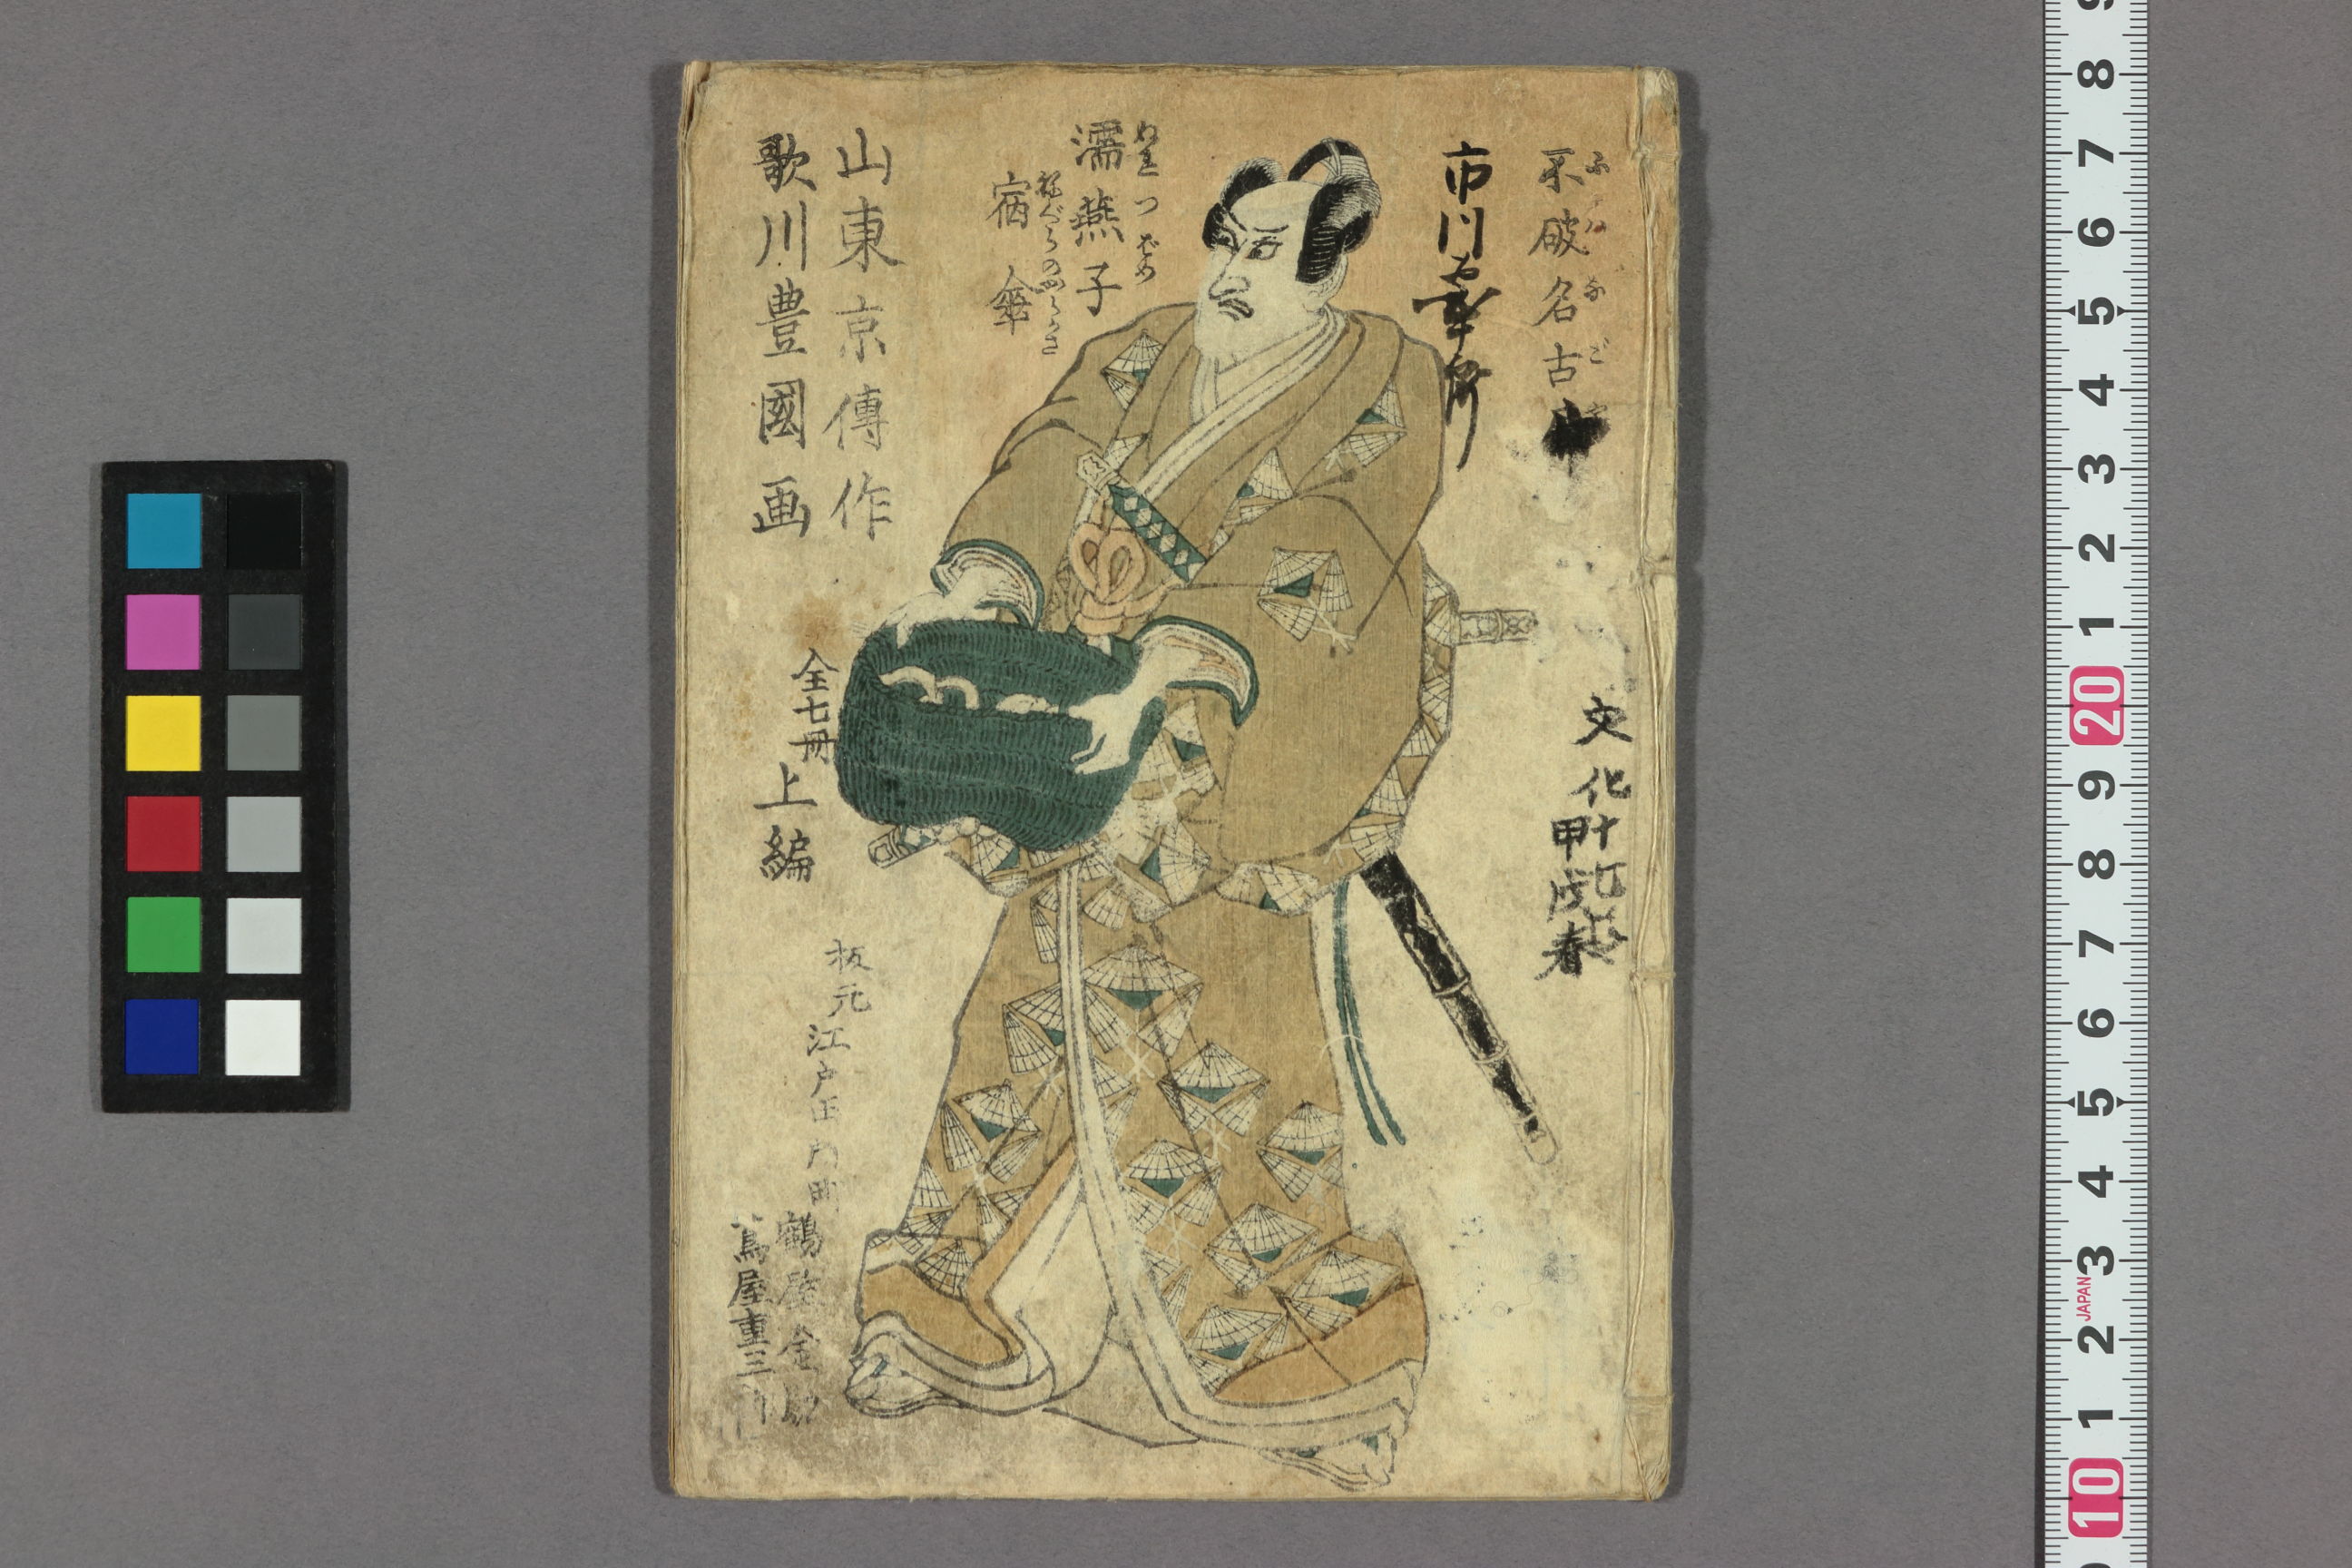 不破名古
ふはなごや
市川
文化十
甲戌春
濡燕子
ぬれつばめ
宿傘
ねぐらのからかさ
山東京傳作
歌川豊國画
全七冊
上編
板元
江戸
鶴屋金助
蔦屋重三
9
8
7
6
5
4
3
2
1
20
9
8
7
6
5
4
3
JAPAN
2
1
10